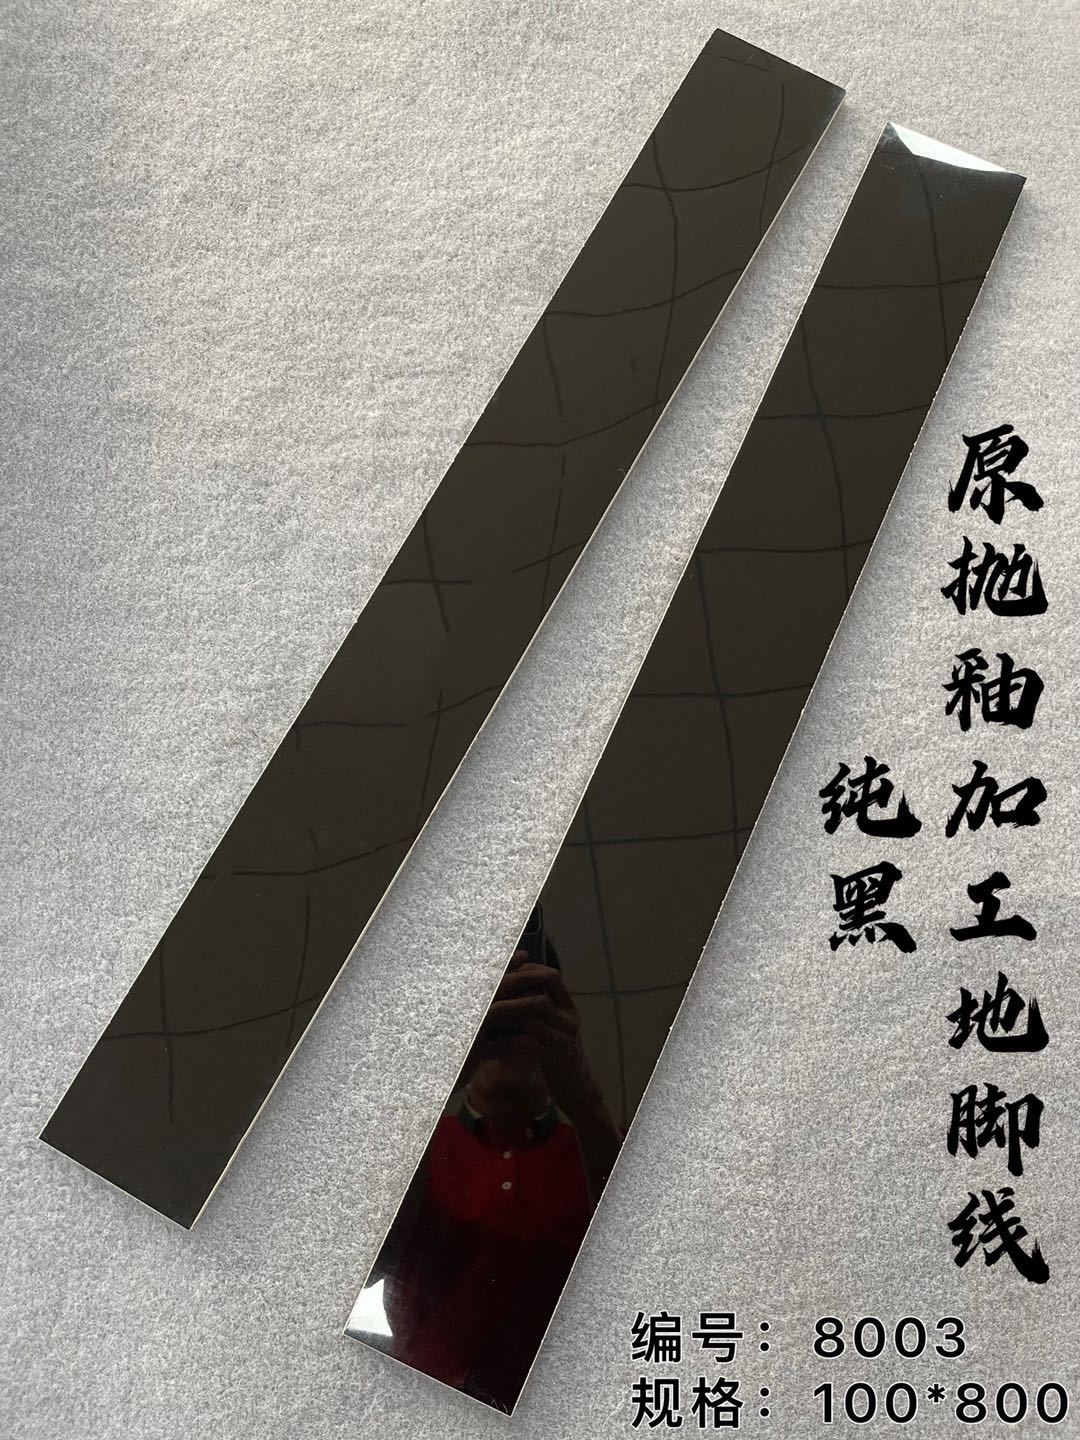 原抛釉加工地脚线
纯黑
编号：8003
规格：100*800